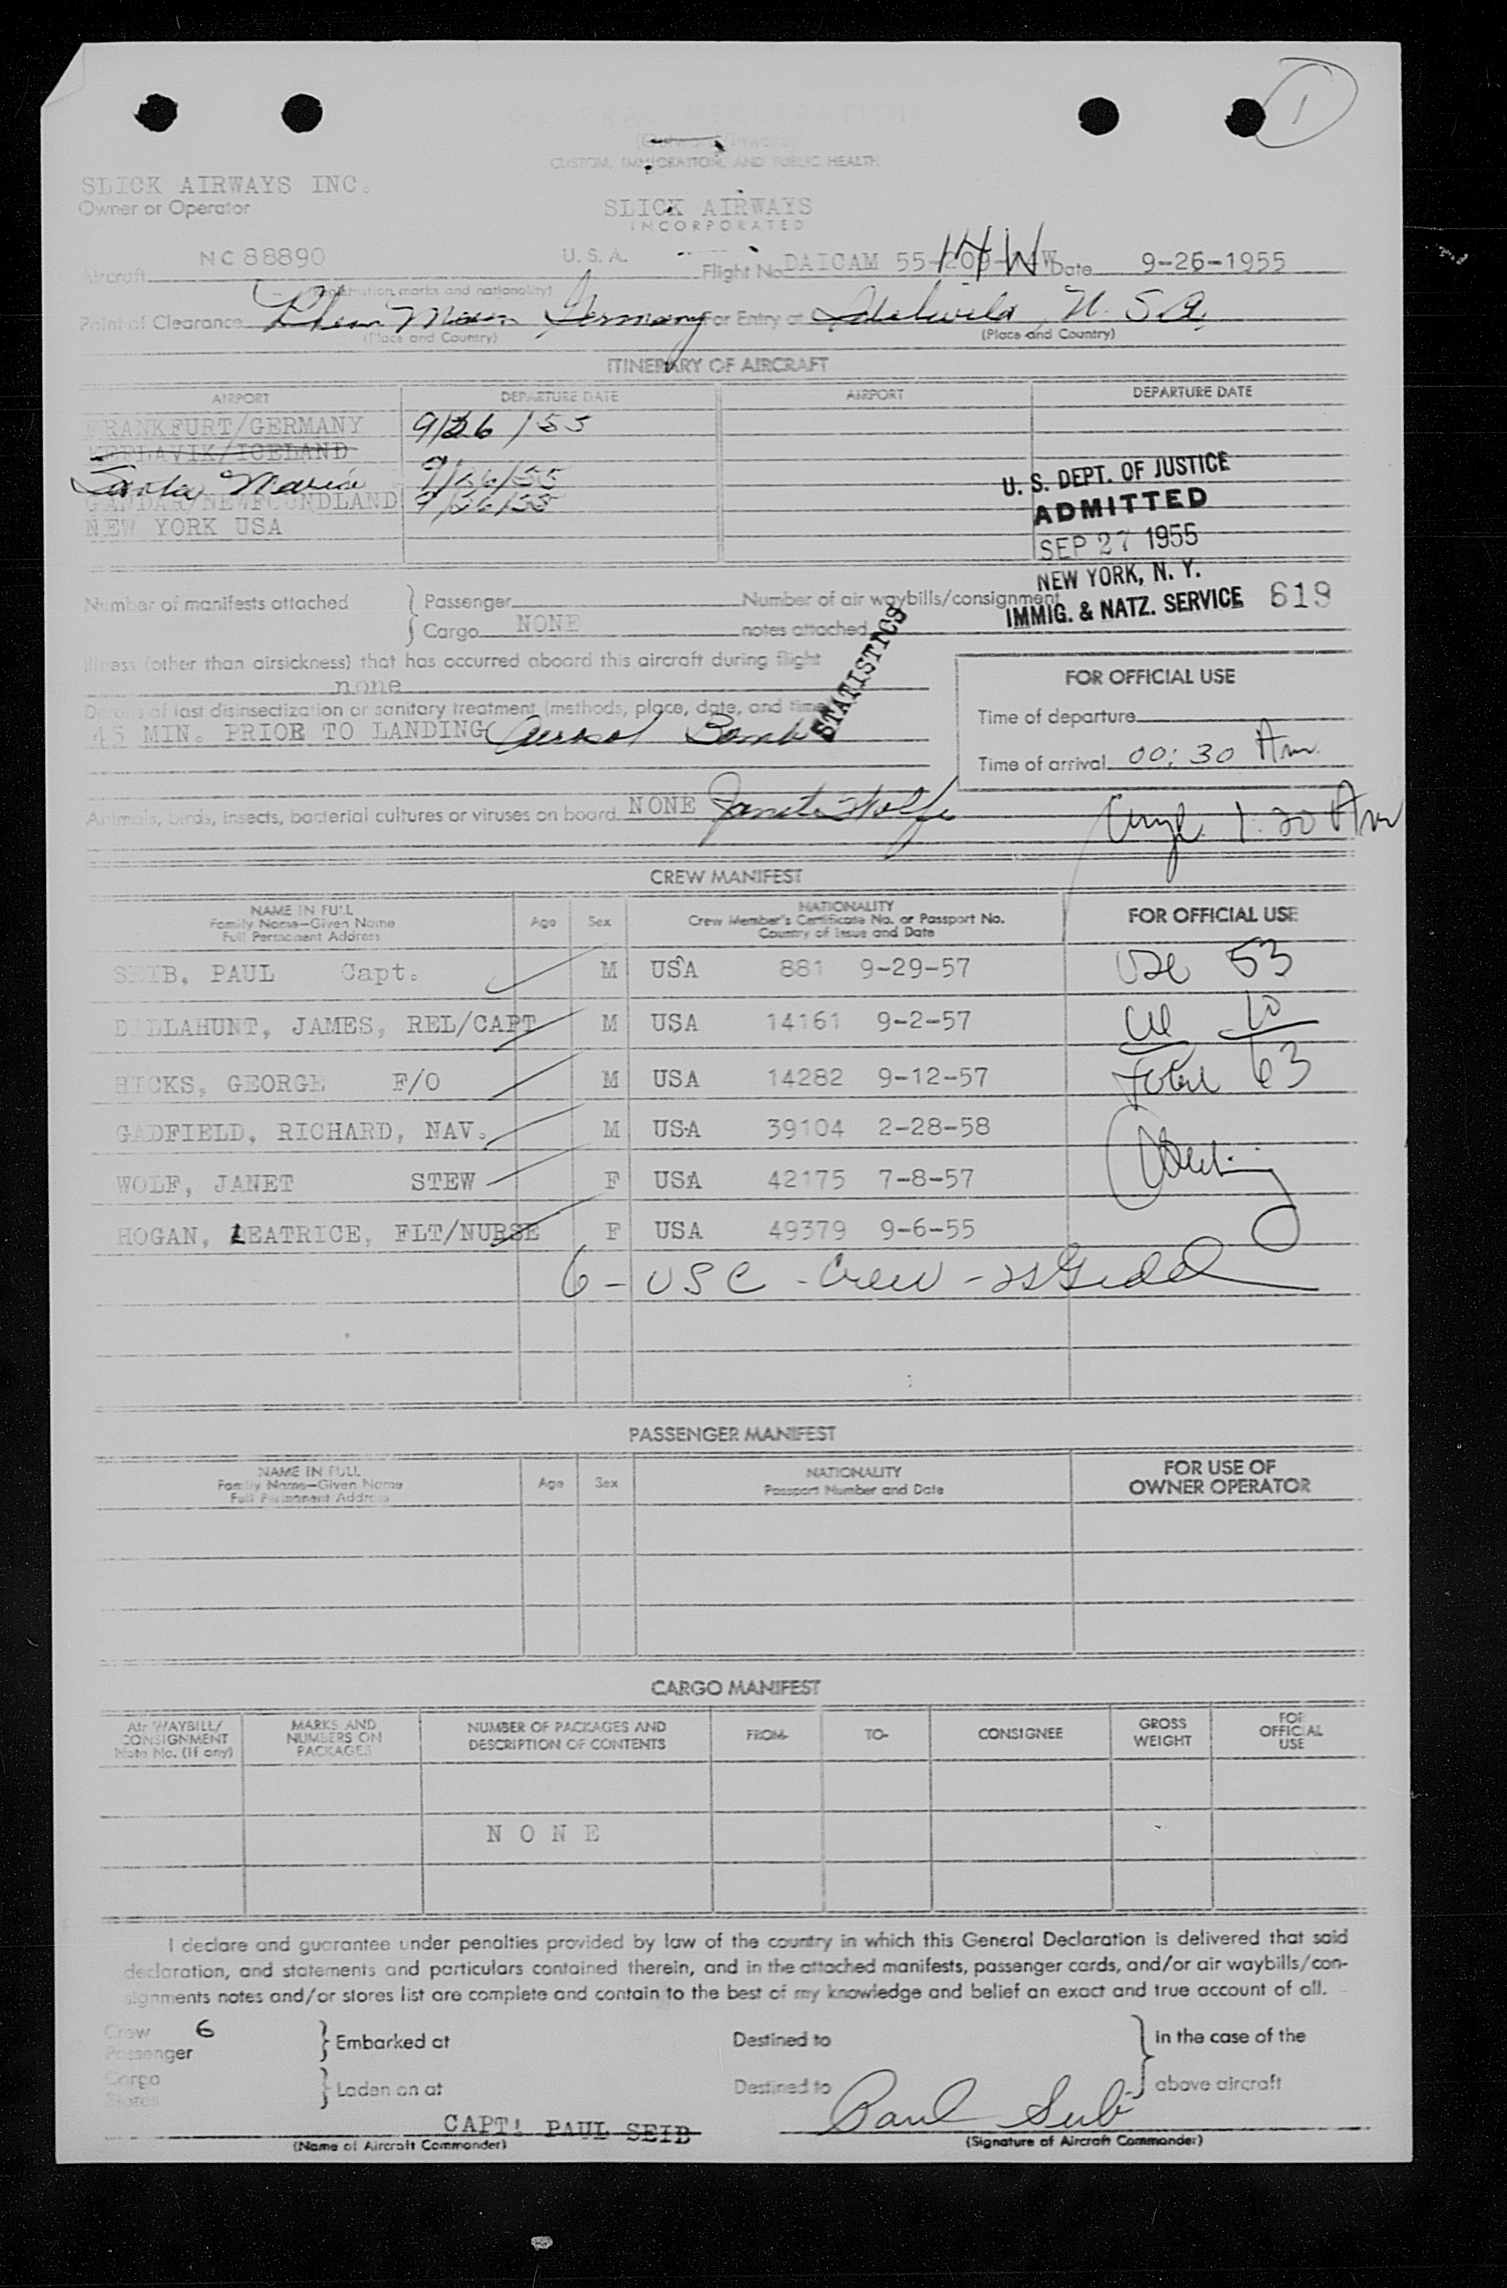 1
GENERAL DECLARATION
(Outward/Inward)
CUSTOM, IMMIGRATION, AND PUBLIC HEALTH
SLICK AIRWAYS INC.
Owner or Operator
SLICK AIRWAYS
INCORPORATED
Aircraft NC 88890 U. S. A. Flight No. DAICAM 55- W Date 9-26-1955
(Registration marks and nationality)
Point of Clearance Rhein Main Germany For Entry at Idlewild, U. S. A.
(Place and Country) (Place and Country)
ITINERARY OF AIRCRAFT
AIRPORT DEPARTURE DATE AIRPORT DEPARTURE DATE
FRANKFURT/GERMANY 9/26/55
KEFLAVIK/ICELAND
Santa Maria 9/26/55
GANDAR/NEWFOUNDLAND 9/26/55
NEW YORK USA
U. S. DEPT. OF JUSTICE
ADMITTED
SEP 27 1955
NEW YORK, N. Y.
IMMIG. & NATZ. SERVICE 619
Number of manifests attached } Passenger Number of air waybills/consignment
Cargo NONE notes attached
STATISTICS
Illness (other than airsickness) that has occurred aboard this aircraft during flight
none
Details of last disinsectization or sanitary treatment (methods, place, date, and time)
45 MIN. PRIOR TO LANDING Aerosol Bomb
FOR OFFICIAL USE
Time of departure
Time of arrival 00:30 Am
Animals, birds, insects, bacterial cultures or viruses on board NONE Janet Wolfe
1:20 Am
CREW MANIFEST
NAME IN FULL
Family Name—Given Name
Full Permanent Address
Age Sex
NATIONALITY
Crew Member's Certificate No. or Passport No.
Country of Issue and Date
FOR OFFICIAL USE
SEIB, PAUL Capt. M USA 881 9-29-57 USC 53
DILLAHUNT, JAMES, REL/CAPT M USA 14161 9-2-57 10
HICKS, GEORGE F/O M USA 14282 9-12-57 Total 63
GADFIELD, RICHARD, NAV. M USA 39104 2-28-58
WOLF, JANET STEW F USA 42175 7-8-57
HOGAN, LEATRICE, FLT/NURSE F USA 49379 9-6-55
6 - USC - Crew -
PASSENGER MANIFEST
NAME IN FULL
Family Name—Given Name
Full Permanent Address
Age Sex
NATIONALITY
Passport Number and Date
FOR USE OF
OWNER OPERATOR
CARGO MANIFEST
Air WAYBILL/
CONSIGNMENT
Note No. (if any)
MARKS AND
NUMBERS ON
PACKAGES
NUMBER OF PACKAGES AND
DESCRIPTION OF CONTENTS
FROM-
TO-
CONSIGNEE
GROSS
WEIGHT
FOR
OFFICIAL
USE
N O N E
I declare and guarantee under penalties provided by law of the country in which this General Declaration is delivered that said
declaration, and statements and particulars contained therein, and in the attached manifests, passenger cards, and/or air waybills/con-
signments notes and/or stores list are complete and contain to the best of my knowledge and belief an exact and true account of all.
Crew 6
Passenger } Embarked at Destined to } in the case of the
Cargo
Stores } Laden on at Destined to above aircraft
CAPT! PAUL SEIB Paul Seib
(Name of Aircraft Commander) (Signature of Aircraft Commander)